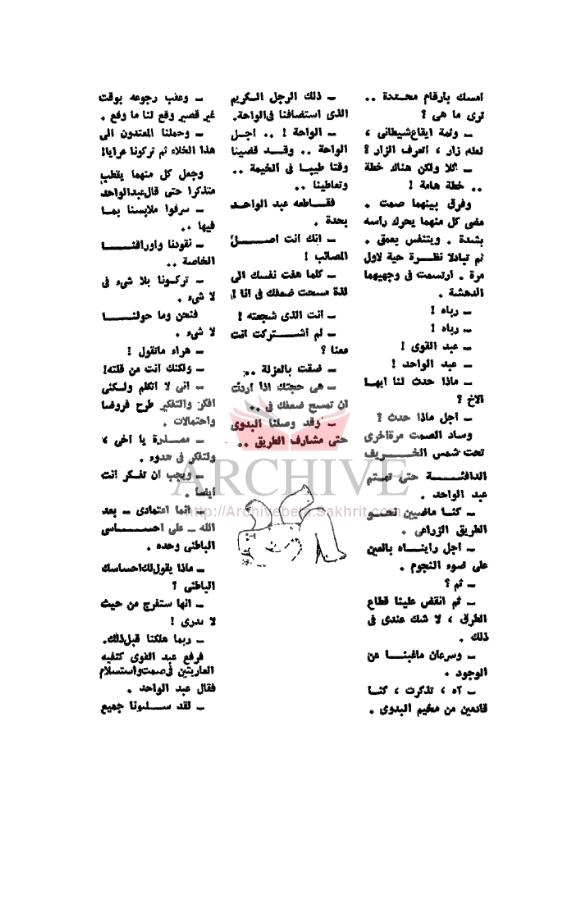 امسك بأرقام محددة ..
ترى ما هى ؟
ـ وثمة ايقاع شيطانى ،
لعله زار ، اتعرف الزار ؟
ـ كلا ولكن هناك خطة
.. خطة هامة !
وفرق بينهما صمت .
مضى كل منهما يحرك رأسه
بشدة . ويتنفس بعمق .
ثم تبادلا نظرة حية لاول
مرة . ارتسمت فى وجهيهما
الدهشة .
ـ رباه !
ـ رباه !
ـ عبد القوى !
ـ عبد الواحد !
ـ ماذا حدث لنا ايها
الاخ ؟
ـ اجل ماذا حدث ؟
وساد الصمت مرة اخرى
تحت شمس الخريف
الدافئة حتى تمتم
عبد الواحد .
ـ كنا ماضيين نحو
الطريق الزراعى .
ـ اجل رايناه بالعين
على ضوء النجوم .
ـ ثم ؟
ـ ثم انقض علينا قطاع
الطرق ، لا شك عندى فى
ذلك .
ـ وسرعان ماغبنا عن
الوجود .
ـ آه ، تذكرت ، كنا
قادمين من مخيم البدوى .
ـ ذلك الرجل الكريم
الذى استضافنا فى الواحة.
ـ الواحة ! .. اجل
الواحة .. وقد قضينا
وقتا طيبا فى الخيمة ..
وتعاطينا ..
فقاطعه عبد الواحد
بحدة .
ـ انك انت اصل
المصائب !
ـ كلما هفت نفسك الى
لذة مسحت ضعفك فى انا !
ـ انت الذى شجعته !
ـ لم اشتركت انت
معنا ؟
ـ ضقت بالعزلة ..
ـ هى حجتك اذا اردت
ان تمسح ضعفك فى ..
ـ وقد وصلنا البدوى
حتى مشارف الطريق ..
ـ وعقب رجوعه بوقت
غير قصير وقع لنا ما وقع .
ـ وحملنا المعتدون الى
هذا الخلاء ثم تركونا عرايا!
وجعل كل منهما يقطب
متذكرا حتى قال عبدالواحد
ـ سرقوا ملابسنا بما
فيها ..
ـ نقودنا واوراقنا
الخاصة ..
ـ تركونا بلا شىء فى
لا شىء .
فنحن وما حولنا
لا شىء .
ـ هراء ماتقول !
ـ ولكنك انت من قلته!
ـ انى لا اتكلم ولكنى
افكر والتفكير طرح فروضا
واحتمالات .
ـ معذرة يا اخى ،
ولنفكر فى هدوء .
ـ ويجب ان تفكر انت
ايضا .
ـ انما اعتمادى ـ بعد
الله ـ على احساسى
الباطنى وحده .
ـ ماذا يقول لك احساسك
الباطنى ؟
ـ انها ستفرج من حيث
لا ندرى !
ـ ربما هلكنا قبل ذلك.
فرفع عبد القوى كتفيه
العاريتين فى صمت واستسلام
فقال عبد الواحد .
ـ لقد سلبونا جميع
ARCHIVE
http://Archivebeta.Sakhrit.com